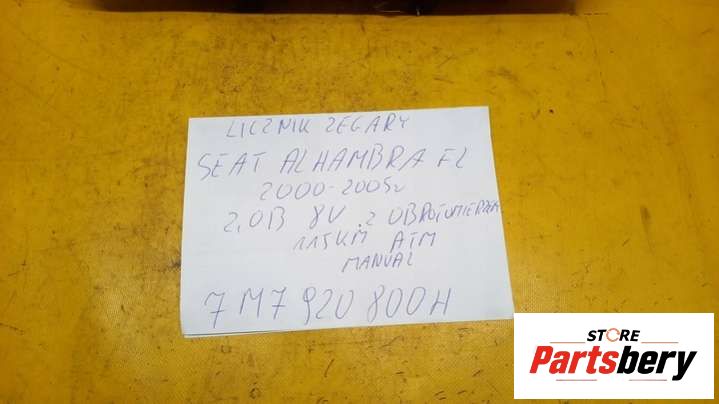 LICZNIK ZEGARY
SEAT ALHAMBRA FL
2000-2005r
2,0B 8V Z OBROTOMIERZEM
115KM ATM
MANUAL
7M7 920 800H
STORE
Partsbery